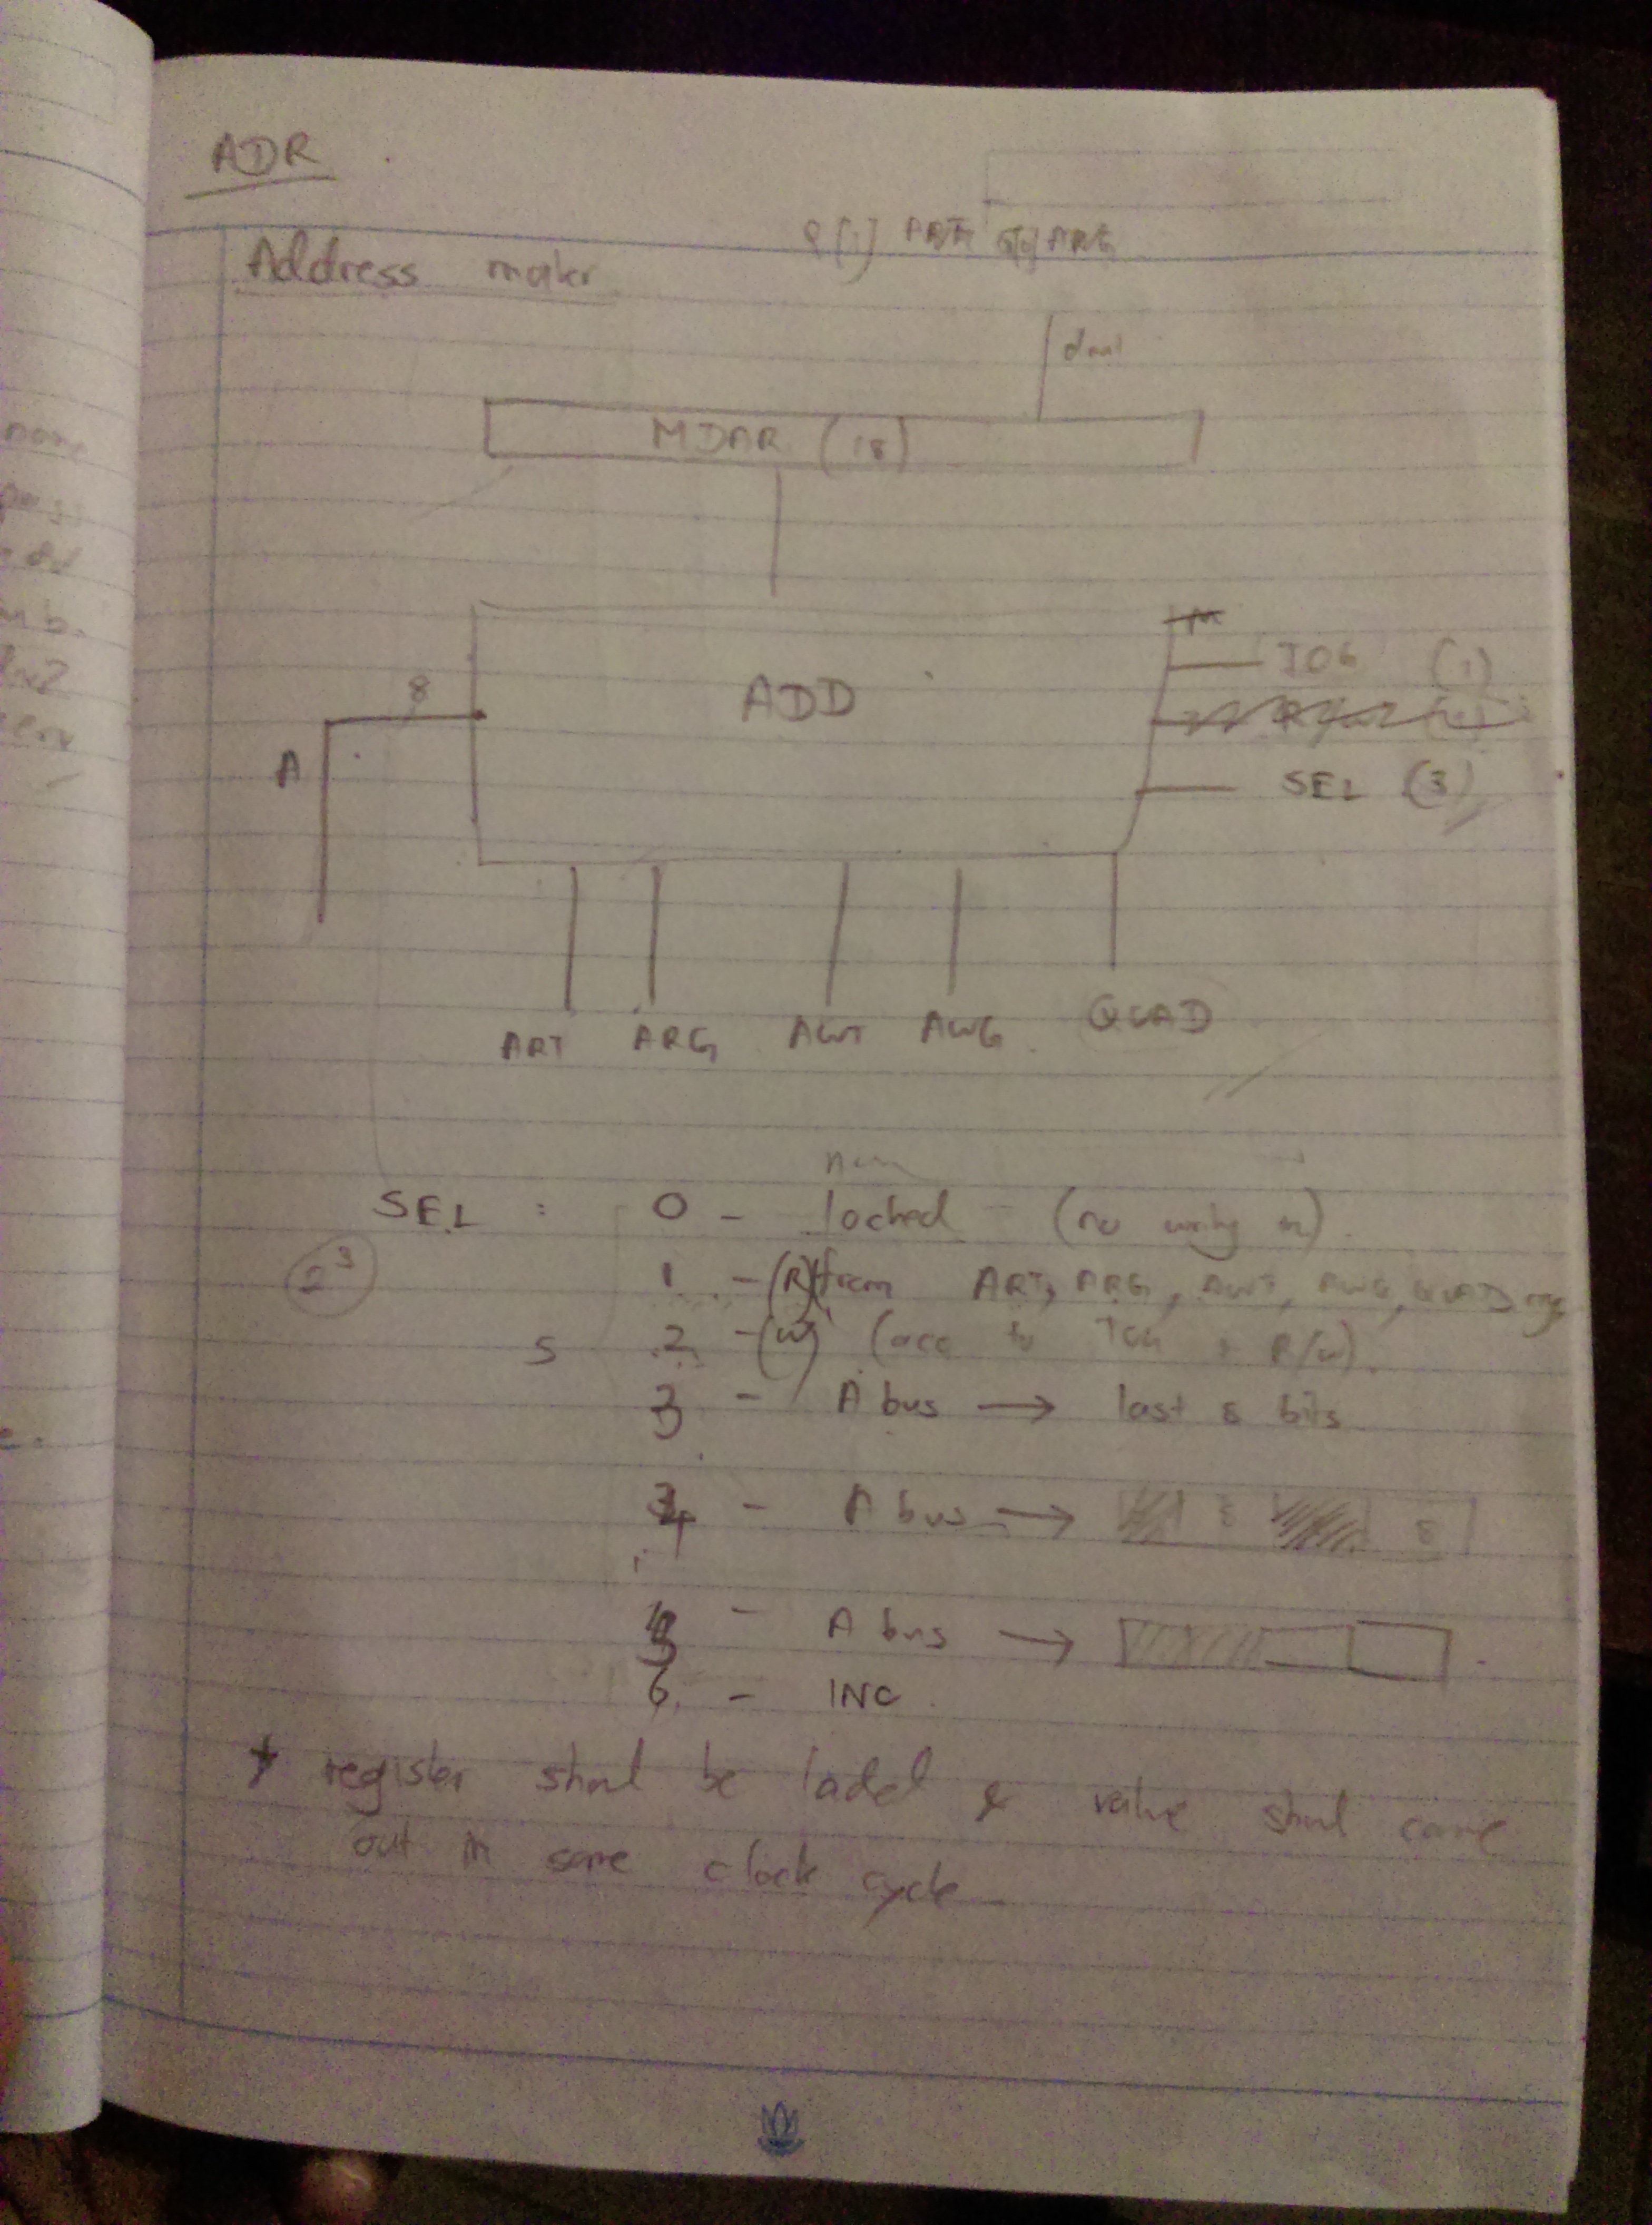 ADR
Address maker
MDAR (18)
8
ADD
A
TOG (1)
SEL (3)
ART ARG AWT AWG QUAD
SEL : 0 - locked (no writing in)
2^3
1 - (R) from ART, ARG, AWT, AWG, QUAD
S 2 - (W) (acc to TOG + R/W).
3 - A bus → last 8 bits
4 - A bus → 8 8
5 - A bus →
6 - INC
register shoul be laded & value shoul come
out in same clock cycle